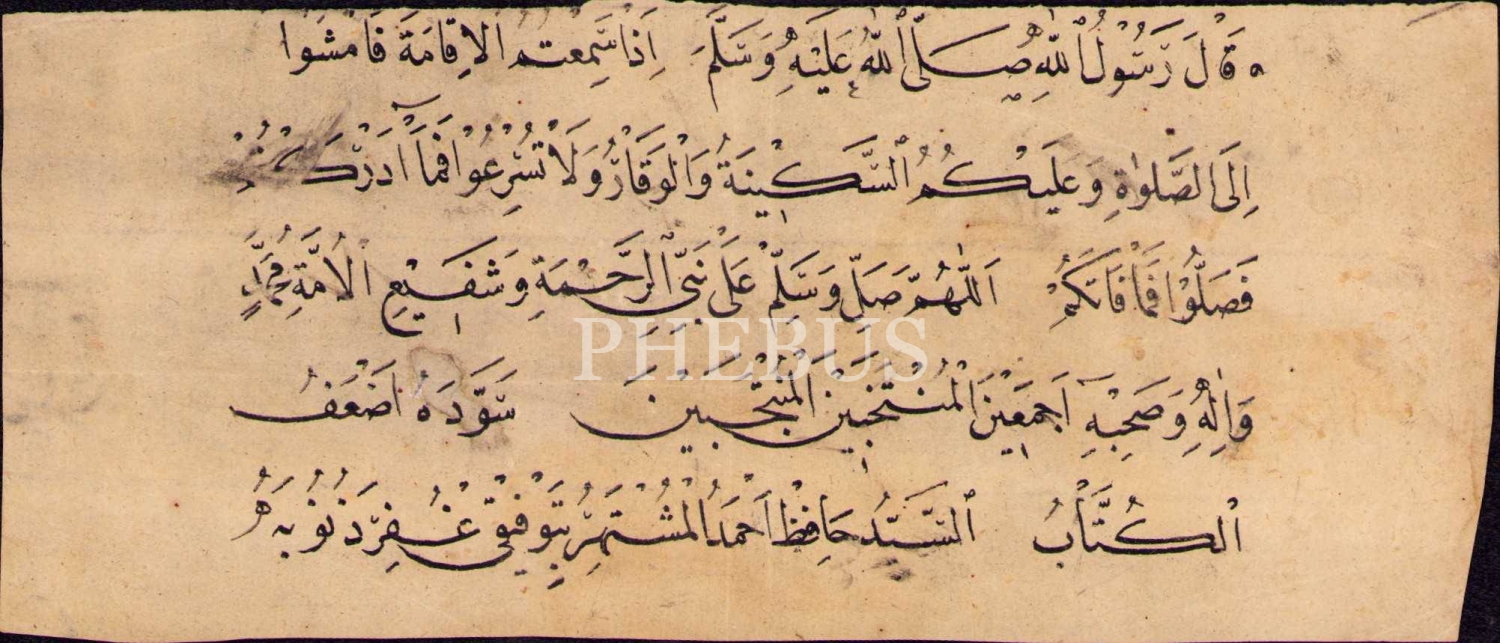 قَالَ رَسُولُ اللّٰهِ صَلَّى اللّٰهُ عَلَيْهِ وَسَلَّمَ اِذَا سَمِعتم الاِقامَةَ فَامشوا
اِلَى الصَّلٰوةِ وَعَلَيْكُمُ السَّكِينَةُ وَالْوَقَارُ وَلَا تُسْرِعُوا فَمَا اَدْرَكْتُمْ
فَصَلُّوْا فَمَا فَاتَكُمْ اَللّٰهُمَّ صَلِّ وَسَلِّمْ عَلَى نَبِيِّ الرَّحْمَةِ وَشَفِيْعِ الْاُمَّةِ مُحَمَّدٍ
وَاٰلِهِ وَصَحْبِهِ اَجْمَعِيْنَ الْمُنْتَخَبِيْنَ الْمُنْتَجَبِيْنَ سَوَّدَهُ اَضْعَفُ
الْكُتَّابُ السَّيِّدُ حَافِظْ اَحْمَدُ الْمُشْتَهِرُ بِتَوْفِيْقِى غُفِرَ ذُنُوبُهُ
PHEBUS